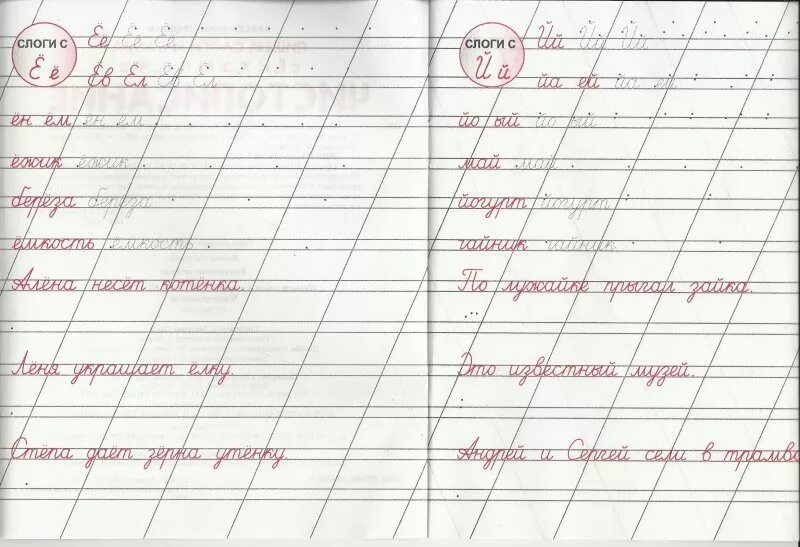 СЛОГИ С
Ё ё
Ёё Ёё Ёё
Ёв Ёл Ёв Ёл
ён ём ён ём
ёжик ёжик
берёза берёза
ёмкость ёмкость
Алёна несёт котёнка.
Лёня украшает ёлку.
Стёпа даёт зёрна утёнку.
СЛОГИ С
Й й
Йй Йй Йй
йа ей йа ей
йо ый йо ый
май май
йогурт йогурт
чайник чайник
По лужайке прыгал зайка.
Это известный музей.
Андрей и Сергей сели в трамва